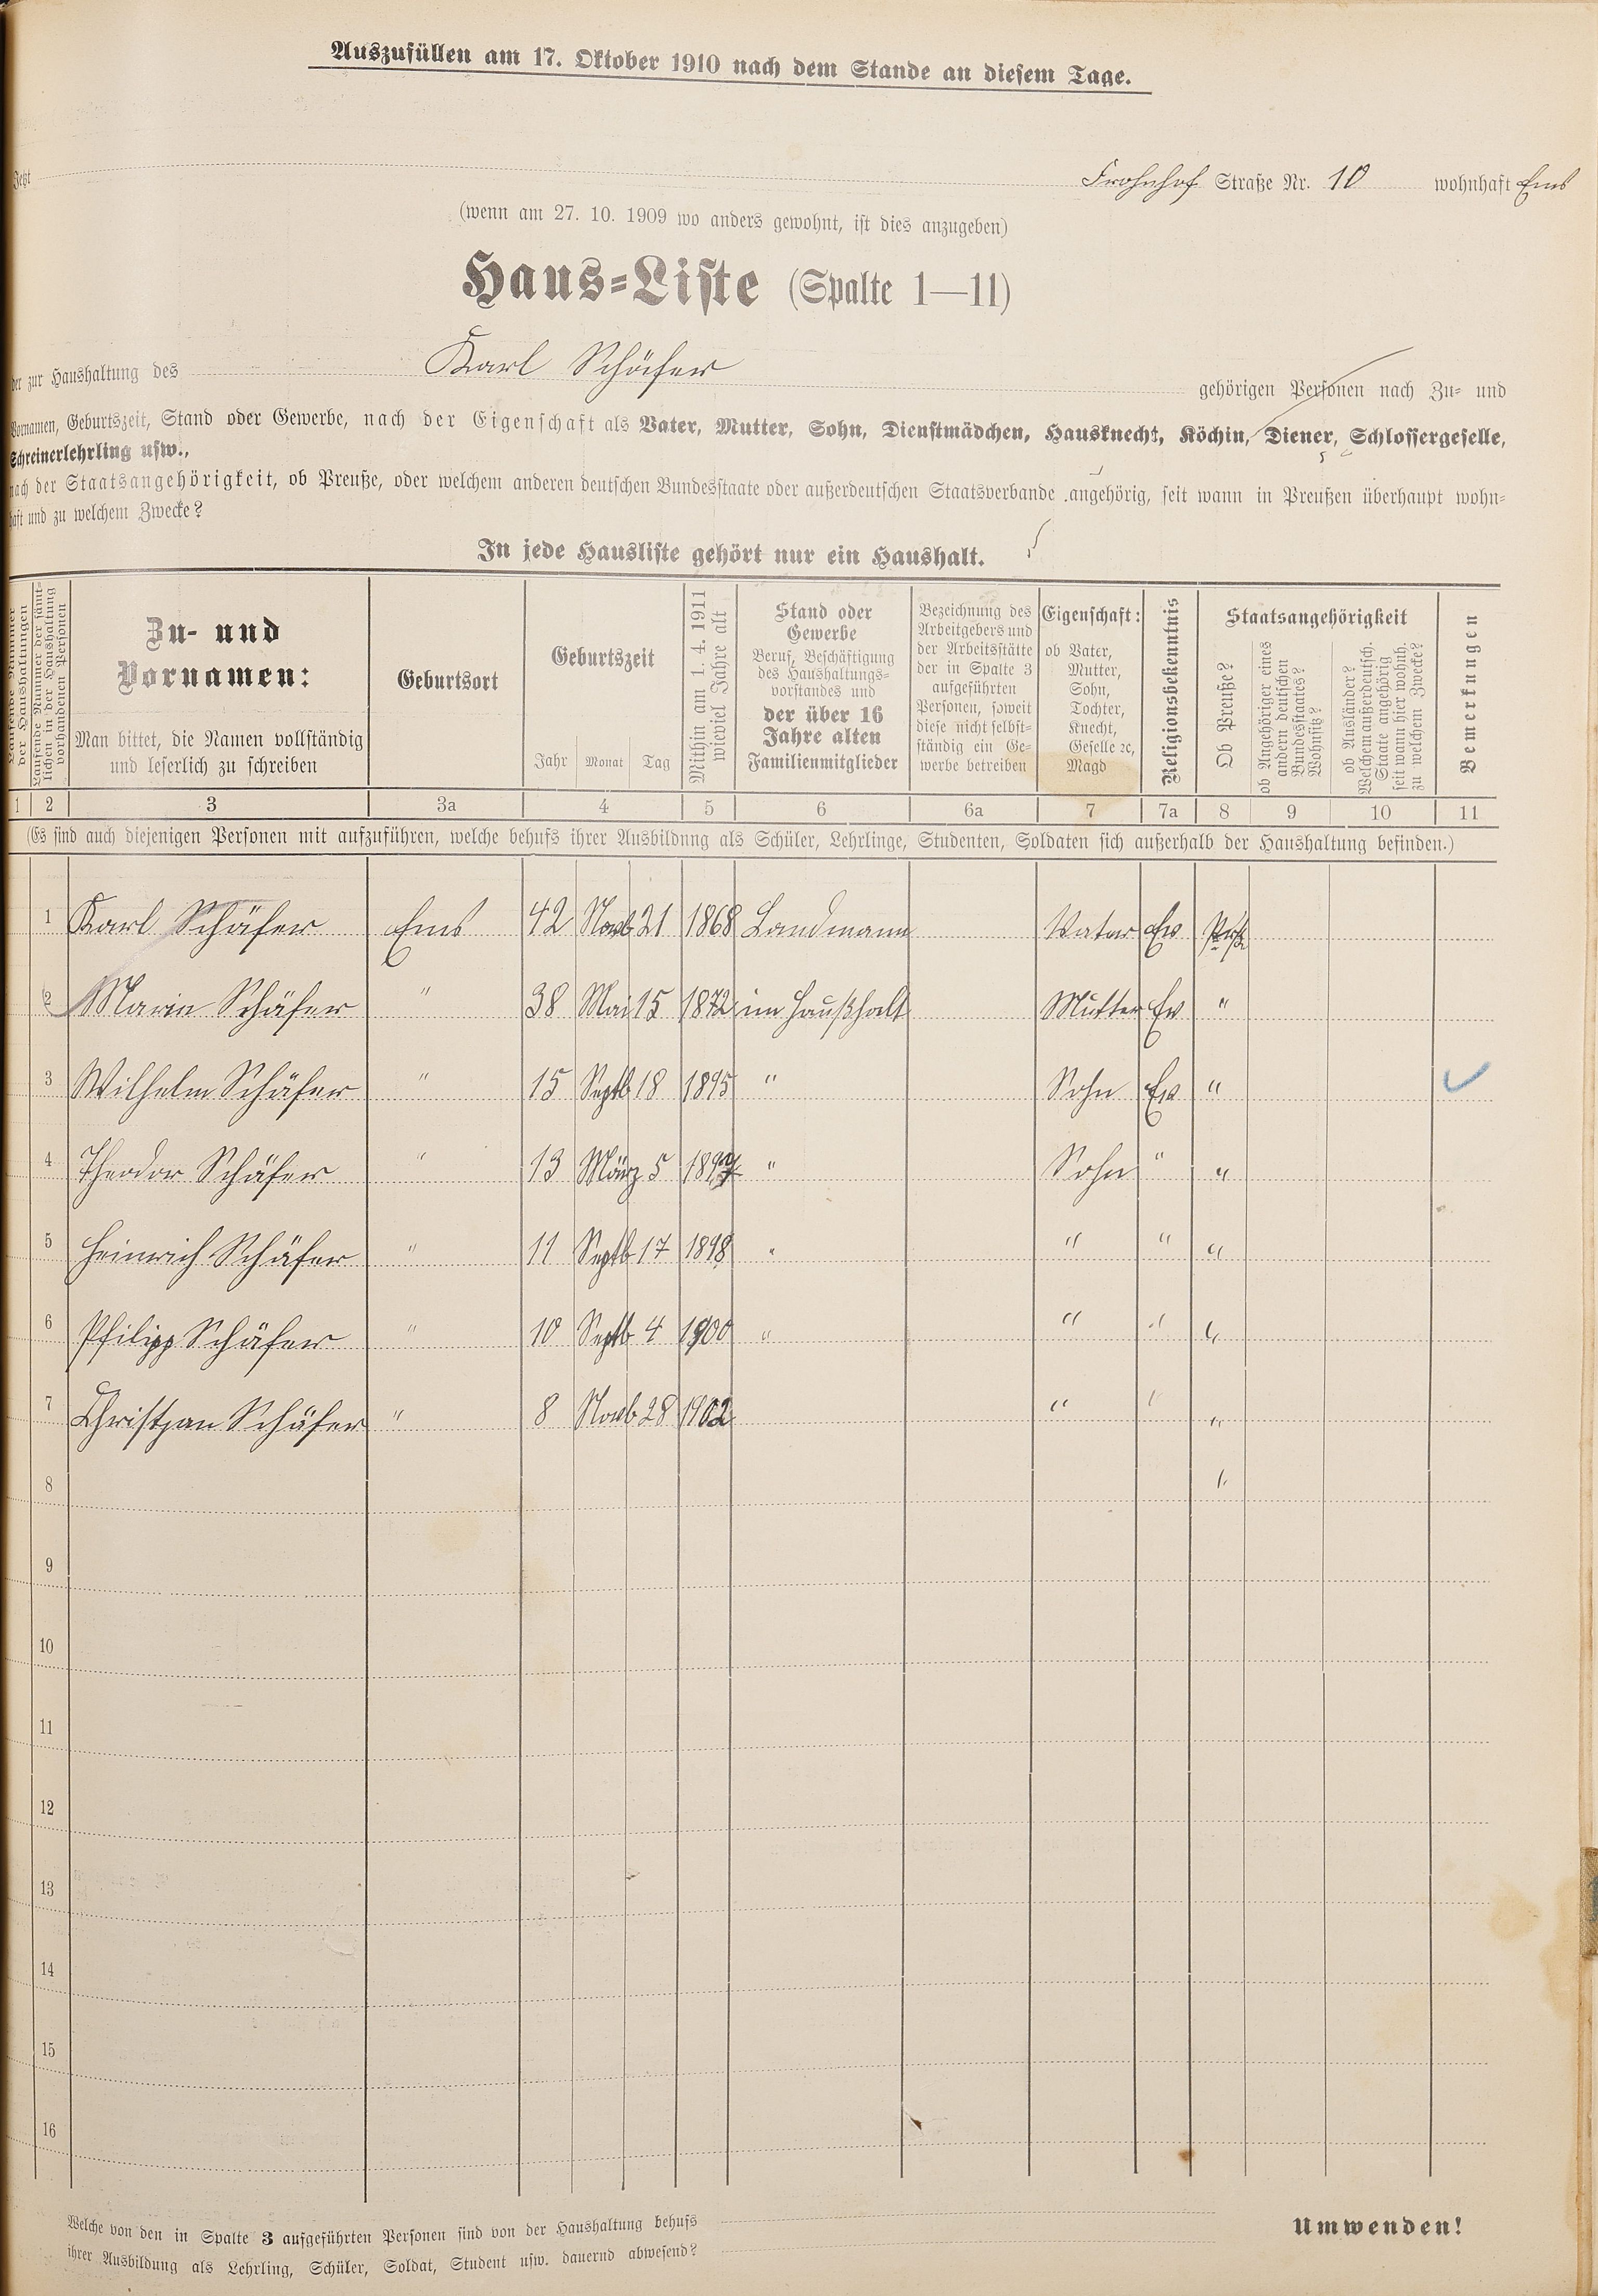 Auszufüllen am 17. Oktober 1910 nach dem Stande an diesem Tage.
Jetzt Frohnhof Straße Nr. 10 wohnhaft Ems
(wenn am 27. 10. 1909 wo anders gewohnt, ist dies anzugeben)
Haus-Liste (Spalte 1—11)
der zur Haushaltung des Karl Schäfer gehörigen Personen nach Zu- und
Vornamen, Geburtszeit, Stand oder Gewerbe, nach der Eigenschaft als Vater, Mutter, Sohn, Dienstmädchen, Hausknecht, Köchin, Diener, Schlossergeselle,
Schreinerlehrling usw.,
nach der Staatsangehörigkeit, ob Preuße, oder welchem anderen deutschen Bundesstaate oder außerdeutschen Staatsverbande angehörig, seit wann in Preußen überhaupt wohn-
haft und zu welchem Zwecke?
In jede Hausliste gehört nur ein Haushalt.
Laufende Nummer der Haushaltungen
Laufende Nummer der sämt-
lichen in der Haushaltung
vorhandenen Personen
Zu- und
Vornamen:
Man bittet, die Namen vollständig
und leserlich zu schreiben
Geburtsort
Geburtszeit
Jahr Monat Tag
Mithin am 1. 4. 1911
wieviel Jahre alt
Stand oder
Gewerbe
Beruf, Beschäftigung
des Haushaltungs-
vorstandes und
der über 16
Jahre alten
Familienmitglieder
Bezeichnung des
Arbeitgebers und
der Arbeitsstätte
der in Spalte 3
aufgeführten
Personen, soweit
diese nicht selbst-
ständig ein Ge-
werbe betreiben
Eigenschaft:
ob Vater,
Mutter,
Sohn,
Tochter,
Knecht,
Geselle ꝛc,
Magd
Religionsbekenntnis
Staatsangehörigkeit
Ob Preuße?
ob Angehöriger eines
andern deutschen
Bundesstaates?
Wohnsitz?
ob Ausländer?
Welchem außerdeutsch.
Staate angehörig
seit wann hier wohnh.
zu welchem Zwecke?
Bemerkungen
1 2 3 3a 4 5 6 6a 7 7a 8 9 10 11
(Es sind auch diejenigen Personen mit aufzuführen, welche behufs ihrer Ausbildung als Schüler, Lehrlinge, Studenten, Soldaten sich außerhalb der Haushaltung befinden.)
1 Karl Schäfer Ems 42 Novb 21 1868 Landmann Vater Ev
2 Marie Schäfer " 38 Mai 15 1872 im Haußhalt Mutter Ev "
3 Wilhelm Schäfer " 15 Septb 18 1895 " Sohn Ev "
4 Theodor Schäfer " 13 März 5 1897 " Sohn " "
5 Heinrich Schäfer " 11 Septb 17 1898 " " " "
6 Philipp Schäfer " 10 Septb 4 1900 " " " "
7 Christjan Schäfer " 8 Novb 28 1902 " " "
8 "
9
10
11
12
13
14
15
16
Welche von den in Spalte 3 aufgeführten Personen sind von der Haushaltung behufs
ihrer Ausbildung als Lehrling, Schüler, Soldat, Student usw. dauernd abwesend?
Umwenden!